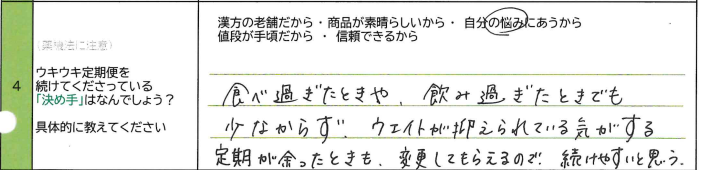 漢方の老舗だから・商品が素晴らしいから・ 自分の悩みにあうから
値段が手頃だから ・ 信頼できるから
(薬機法に注意)
4
ウキウキ定期便を
続けてくださっている
「決め手」はなんでしょう？
具体的に教えてください
食べ過ぎたときや、飲み過ぎたときでも
少なからず、ウエイトが抑えられている気がする
定期が余ったときも、変更してもらえるので、続けやすいと思う.